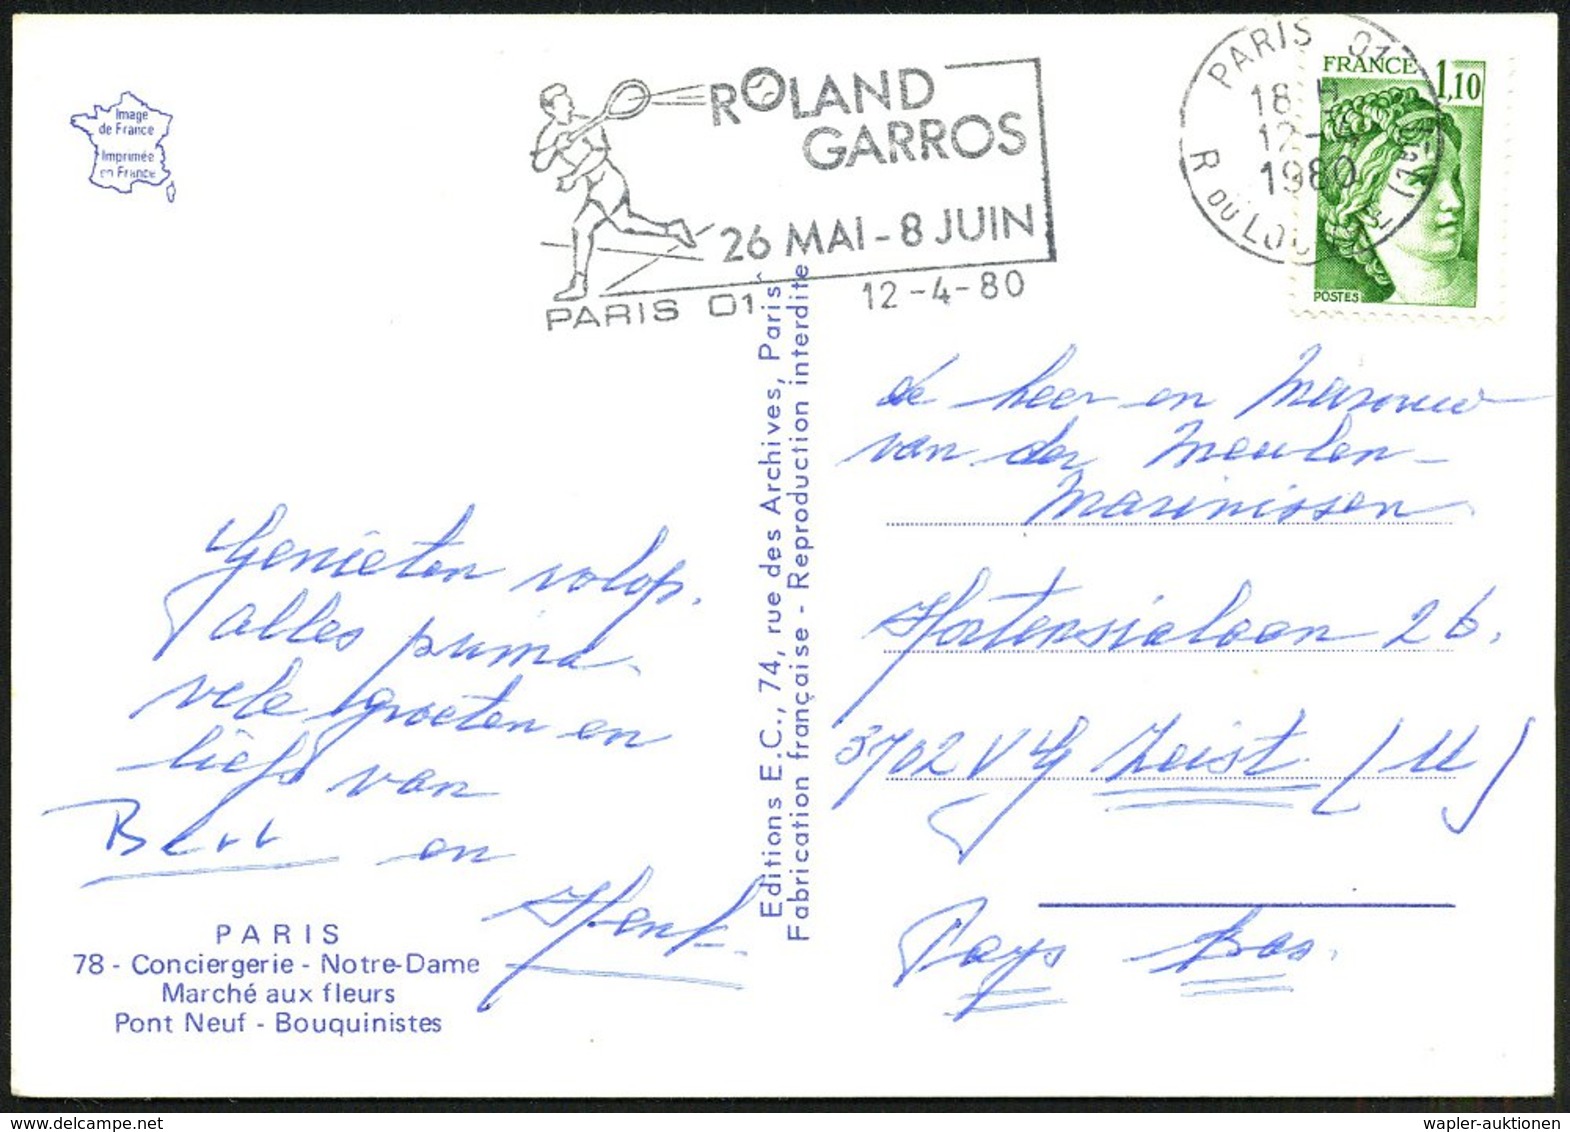 Image
de France
Imprimée
en France
ROLAND
GARROS
26 MAI - 8 JUIN
PARIS 01
12-4-80
PARIS 01
18 H
12-4
1980
R DU LOUVRE (1er)
FRANCE 1,10
POSTES
de heer en Mevrouw
van der Meulen-
Marinissen
Hortensialaan 26.
3702 VG Zeist. (U)
Pays Bas.
Genieten volop.
alles prima
vele groeten en
liefs van
en
Henk.
PARIS
78 - Conciergerie - Notre-Dame
Marché aux fleurs
Pont Neuf - Bouquinistes
Editions E.C., 74, rue des Archives, Paris
Fabrication française - Reproduction interdite
wapler-auktionen